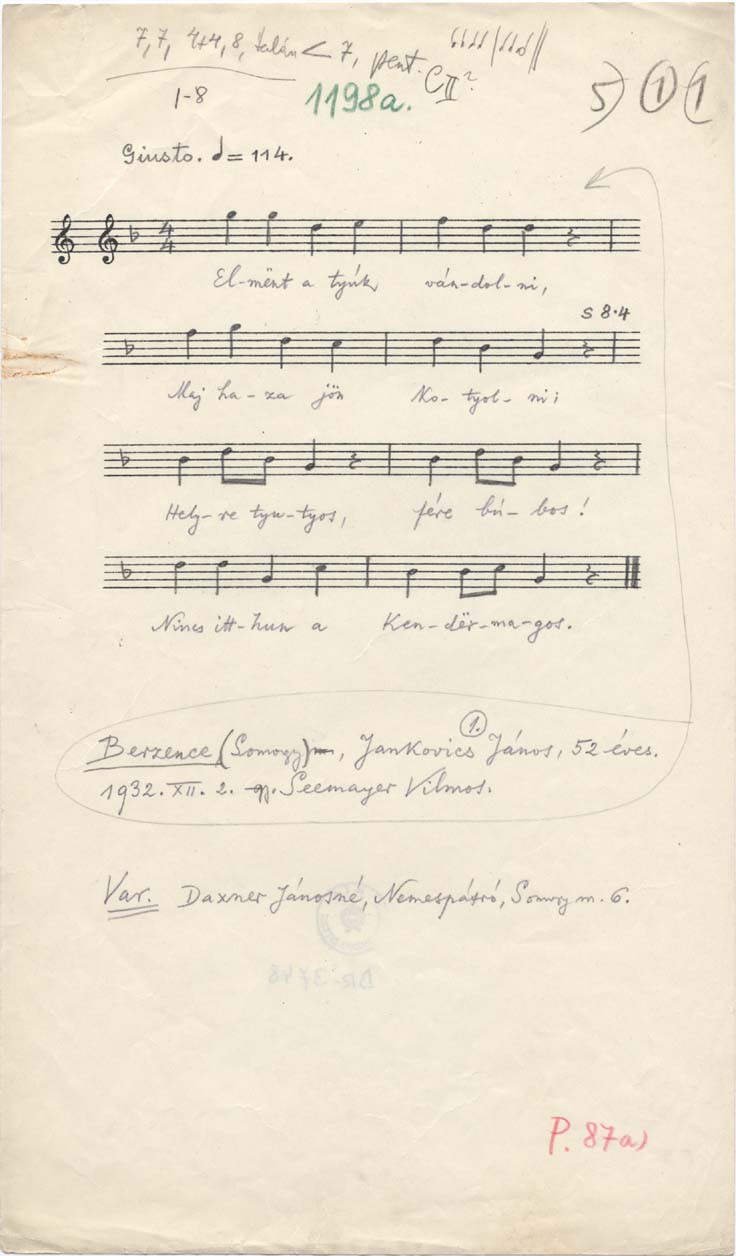 7, 7, 4+4, 8, talán < 7, pent.
CII?
1-8
1198a.
5) 1 1
Giusto. = 114.
El-mënt a tyúk, ván-dol-ni,
S 8·4
Maj ha-za jön Ko-tyol-ni;
Hely-re tyu-tyos, fére bú-bos!
Nincs itt-hun a Ken-dër-ma-gos.
1.
Berzence (Somogy), Jankovics János, 52 éves.
1932. XII. 2. Seemayer Vilmos.
Var. Daxner Jánosné, Nemespátró, Somogy m. 6.
BR-3748
P. 87a)